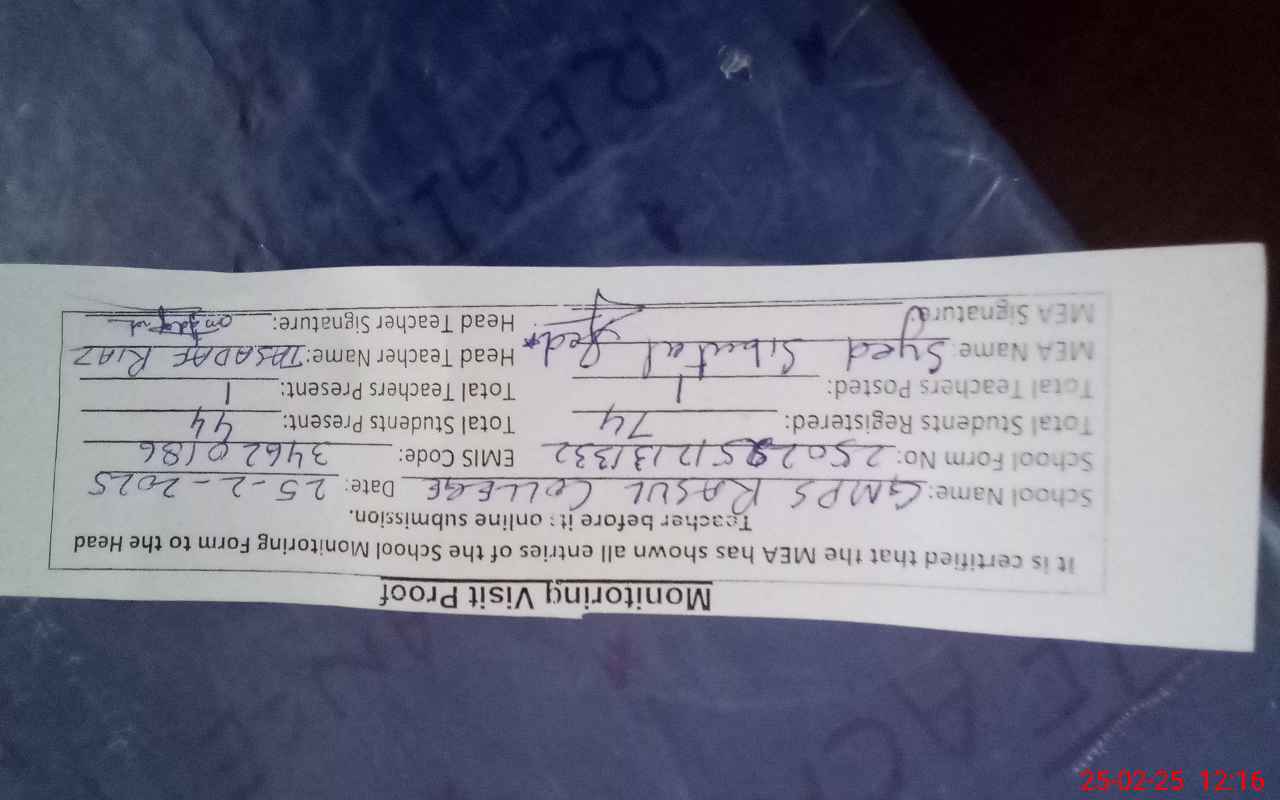 Monitoring Visit Proof
It is certified that the MEA has shown all entries of the School Monitoring Form to the Head
Teacher before it : online submission.
School Name: GMPS RASUL COLLEGE Date: 25-2-2025
School Form No: EMIS Code: 34620186
Total Students Registered: 74 Total Students Present: 44
Total Teachers Posted: 1 Total Teachers Present: 1
MEA Name: Syed Head Teacher Name: TASADAF RIAZ
MEA Signature: Head Teacher Signature:
25-02-25 12:16